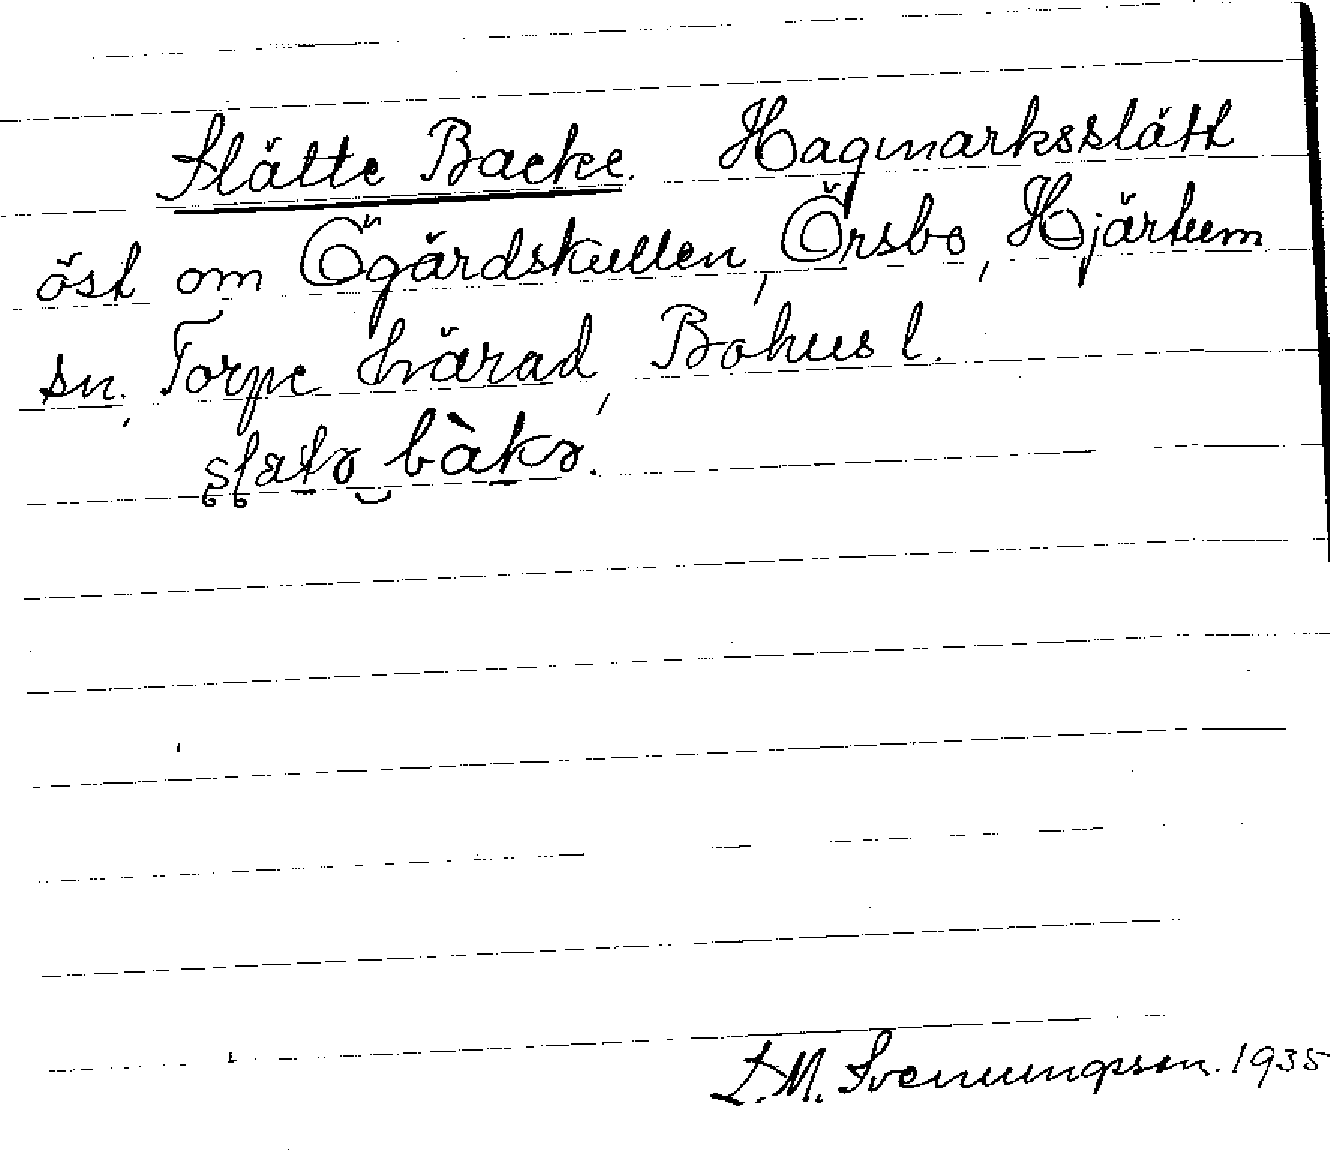 Slätte Backe. Hagmarksslätt
öst om Ögärdskullen, Örsbo, Hjärtum
sn., Torpe härad, Bohus l.
bàkə.
L.M. Svenungsson. 1935